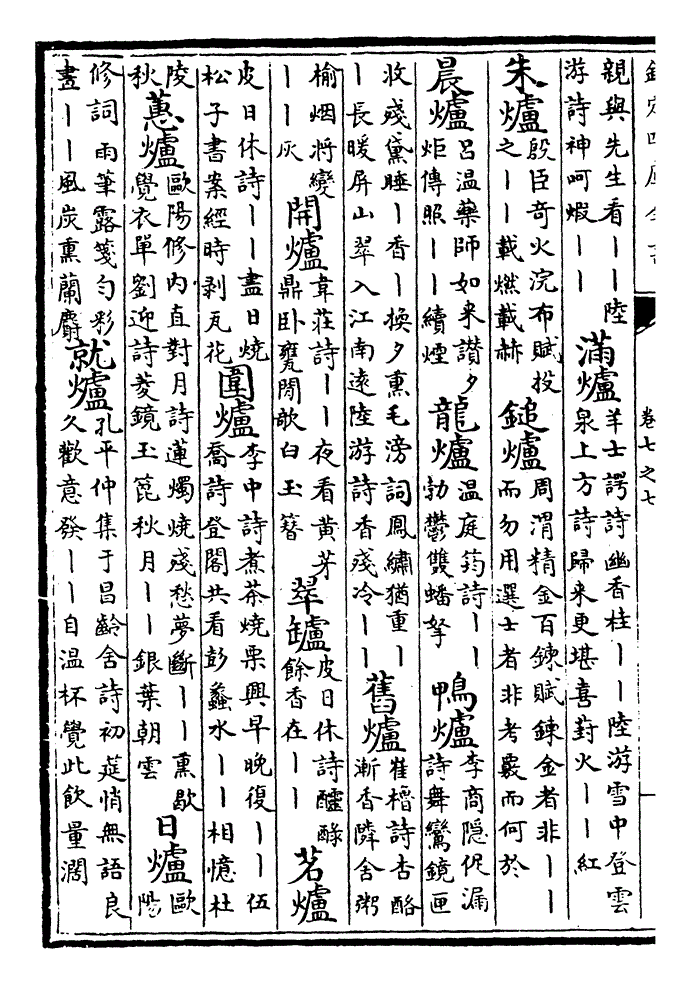 欽定四庫全書
卷七之七
親與先生看丨丨陸
游詩神呵蝦丨丨
滿爐
羊士諤詩幽香桂丨丨陸游雪中登雲
泉上方詩歸来更堪喜葑火丨丨紅
朱爐
殷臣奇火浣布賦投
之丨丨載燃載赫
鎚爐
周渭精金百鍊賦鍊金者非丨丨
而勿用選士者非考覈而何於
晨爐
吕温藥師如来讃夕
炬傳照丨丨續煙
龍爐
温庭筠詩丨丨
勃鬱雙蟠拏
鴨爐
李商隠促漏
詩舞鸞鏡匣
收殘黛睡丨香丨換夕熏毛滂詞鳳繡猶重丨
丨長暖屏山翠入江南遠陸游詩香殘冷丨丨
舊爐
崔櫓詩杏酪
漸香隣舍粥
榆烟将變
丨丨灰
開爐
韋莊詩丨丨夜看黄芽
鼎卧甕閒歌白玉簪
翠鑪
皮日休詩醽醁
餘香在丨丨
茗爐
皮日休詩丨丨盡日燒
松子書案經時剥瓦花
圍爐
李中詩煮茶燒栗興早晚復丨丨伍
喬詩登閣共看彭蠡水丨丨相憶杜
陵
秋
蕙爐
歐陽修内直對月詩蓮燭燒殘愁夢斷丨丨熏歇
覺衣單劉迎詩菱鏡玉箆秋月丨丨銀葉朝雲
日爐
歐
陽
修詞雨筆露箋勻彩
晝丨丨風炭熏蘭麝
就爐
孔平仲集于昌齡舍詩初莚悄無語良
久歡意發丨丨自温杯覺此飲量濶